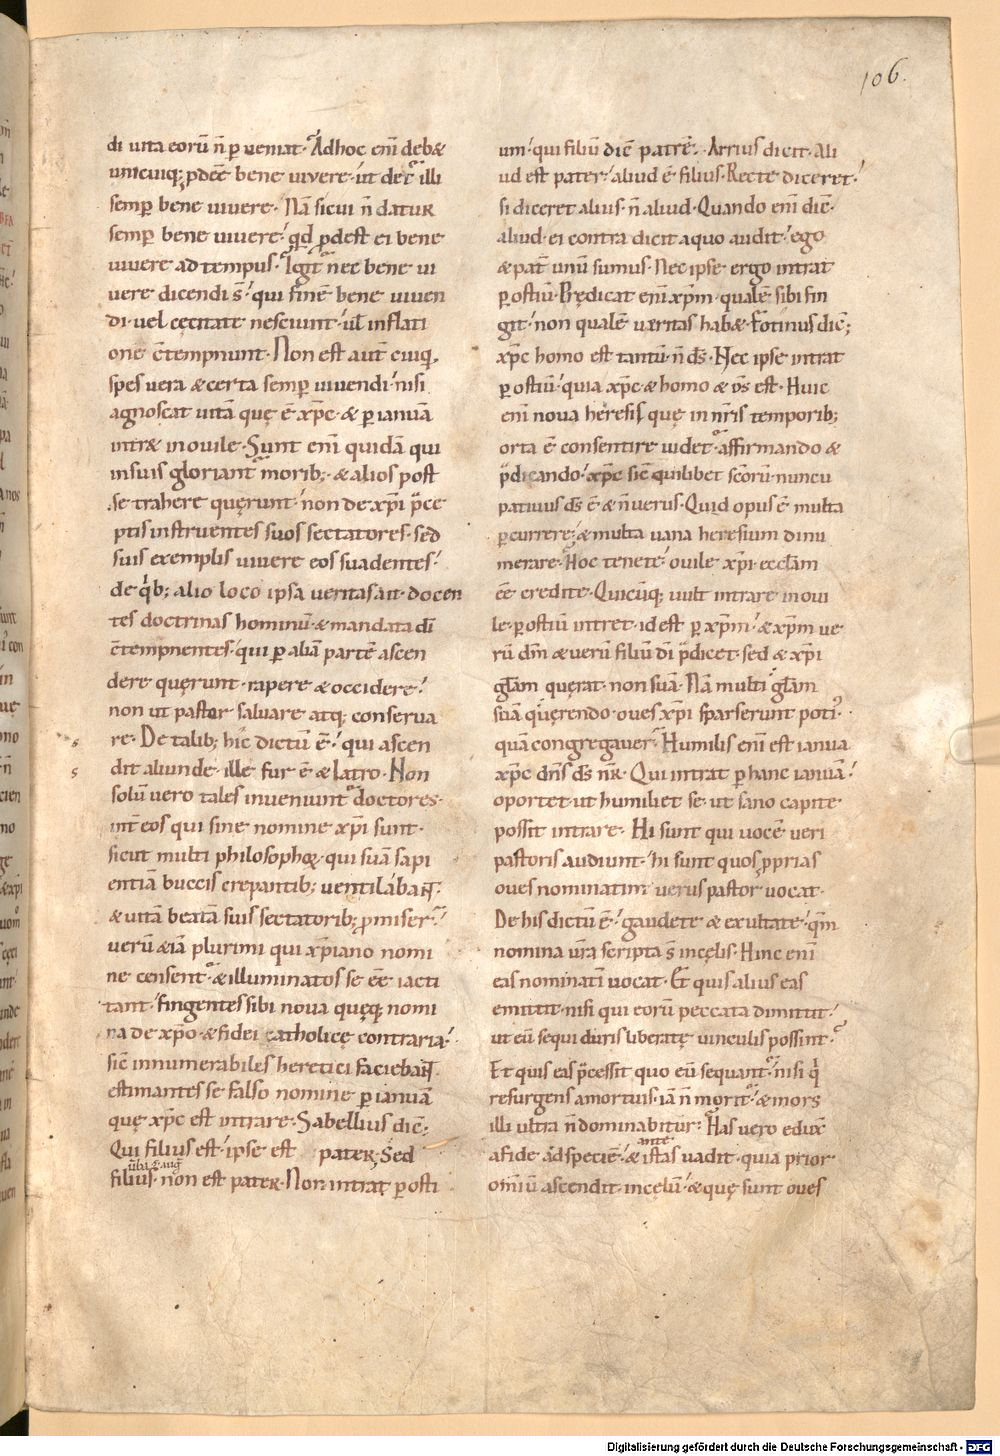 106.
di uita eorū n̄ ꝑueniat. Adhoc eni debꝫ
unicuiq; ꝓdeē bene uiuere. ut det᷑ illi
semꝑ bene uiuere. Nā sicui n̄ datur
semꝑ bene uiuere. qd ꝓdest ei bene
uiuere ad tempus. Igit᷑ nec bene ui
uere dicendi s̄. qui finē bene uiuen
di. uel cęcitate nesciunt. ul inflati
one c̄tempnunt. Non est aut̄ cuiq.
spes uera & certa semꝑ uiuendi. nisi
agnoscat uitā quę ē xp̄c. & ꝑ ianuā
intret in ouile. Sunt eni quidā qui
insuis gloriant᷑ morib; & alios post
se trahere quęrunt. non de xp̄i p̄ce
ptis instruentes suos sectatores. sed
suis exemplis uiuere eos suadentes.
de qib; alio loco ipsa ueritas ait. docen
tes doctrinas hominū. & mandata dī
c̄tempnentes. qui ꝑ aliā partē ascen
dere quęrunt. rapere & occidere.
non ut pastor saluare atq; conserua
re. De talib; hic dictū ē. qui ascen
dit aliunde. ille fur ē & latro. Non
solū uero tales inueniunt᷑ doctores.
int̄ eos qui sine nomine xp̄i sunt.
sicut multi philosophoꝝ. qui suā sapi
entiā buccis crepantib; uentilabant.
& uitā beatā suis sectatorib; ꝓmiser᷑.
uerū &iā plurimi qui xp̄iano nomi
ne censent᷑. & illuminatos se eē iacti
tant. fingentes sibi noua quęq; nomi
na de xp̄o. & fidei catholicę contraria.
sic̄ innumerabiles heretici faciebant.
estimantes se falso nomine ꝑ ianuā
quę xp̄c est intrare. Sabellius dic̄.
Qui filius est. ipse est pater. Sed
filius. non est pater. Non intrat ꝑ osti
um. qui filiū dic̄ patrē. Arrius dicit. Ali
ud est pater. aliud ē filius. Recte diceret.
si diceret alius. n̄ aliud. Quando eni dic̄.
aliud. ei contra dicit aquo audit. ego
& pat̄ unū sumus. Nec ipse ergo intrat
ꝑ ostiū. Prędicat eni xp̄m. qualē sibi fin
git. non qualē ueritas habꝫ. Fotinus dic̄;
xp̄c homo est tantū. n̄ ds̄. Nec ipse intrat
ꝑ ostiū. quia xp̄c & homo & ds̄ est. Huic
eni noua heresis quę in nr̄is temporib;
orta ē consentire uidet᷑. affirmando &
p̄dicando. xp̄c sic̄ quilibet sc̄orū. nuncu
patiuus ds̄ ē & n̄ uerus. Quid opus ē multa
ꝑcurrere; & multa uana heresium dinu
merare. Hoc tenete. ouile xp̄i. eccłam
eē credite. Quicūq; uult intrare in oui
le. ꝑ ostiū intret. id est ꝑ xp̄m. & xp̄m ue
rū dm̄ & uerū filiū di p̄dicet. sed & xp̄i
głam quęrat. non suā. Nā multi głam
suā quęrendo. oues xp̄i sparserunt poti᷒.
quā congregauer᷑. Humilis eni est ianua
xp̄c dn̄s ds̄ nr̄. Qui intrat ꝑ hanc ianuā.
oportet. ut humiliet se. ut sano capite
possit intrare. Hi sunt qui uocē ueri
pastoris audiunt. hi sunt quos ꝓprias
oues nominatim uerus pastor uocat.
De his dictū ē. gaudete & exultate. qm̄
nomina ur̄a scripta s̄ in cęlis. Hinc eni
eas nominatī uocat. Et quis alius eas
emittit. nisi qui eorū peccata dimittit.
ut eū sequi duris liberatę uinculis possint.
Et quis eas p̄cessit quo eū sequant᷑. nisi qi
resurgens amortuis. iā n̄ morit᷑. & mors
illi ultra n̄ dominabitur. Has uero eduxit
afide ad speciē. & ante istas uadit. quia prior
omiū ascendit. in cęlū. & quę sunt oues